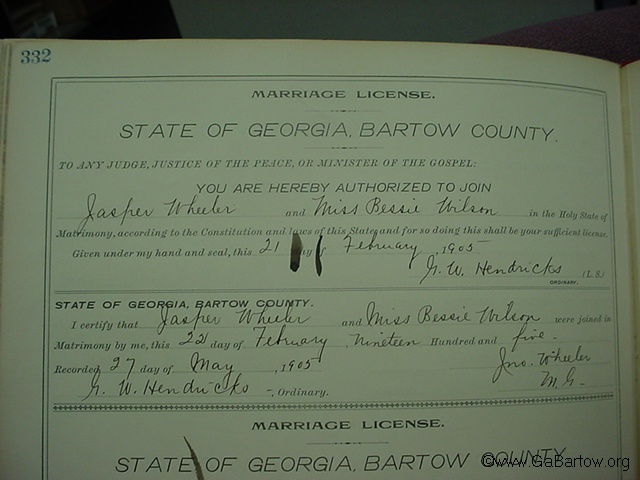 332
MARRIAGE LICENSE.
STATE OF GEORGIA, BARTOW COUNTY.
TO ANY JUDGE, JUSTICE OF THE PEACE, OR MINISTER OF THE GOSPEL:
YOU ARE HEREBY AUTHORIZED TO JOIN
Jasper Wheeler and Miss Bessie Wilson in the Holy State of
Matrimony, according to the Constitution and laws of this State, and for so doing this shall be your sufficient license.
Given under my hand and seal, this 21 day of February, 1905
G. W. Hendricks (L. S.)
ORDINARY.
STATE OF GEORGIA, BARTOW COUNTY.
I certify that Jasper Wheeler and Miss Bessie Wilson were joined in
Matrimony by me, this 22 day of February, Nineteen Hundred and five.
Recorded 27 day of May, 1905 Jno. Wheeler
G. W. Hendricks, Ordinary. M. G.
MARRIAGE LICENSE.
STATE OF GEORGIA, BARTOW COUNTY
©www.GaBartow.org